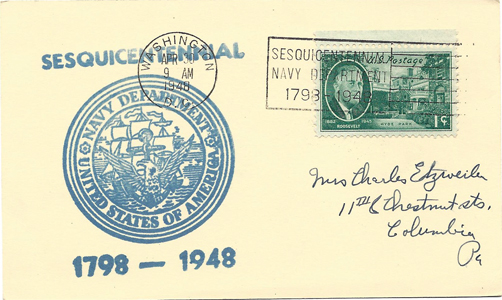 SESQUICENTENNIAL
NAVY DEPARTMENT
UNITED STATES OF AMERICA
1798 — 1948
WASHINGTON
APR 30
9 AM
1948
SESQUICENTENNIAL
NAVY DEPARTMENT
1798 1948
U.S. Postage
1882 1945
ROOSEVELT
HYDE PARK
1¢
Mrs Charles Etzweiler
Chestnut sts.
Columbia
Pa